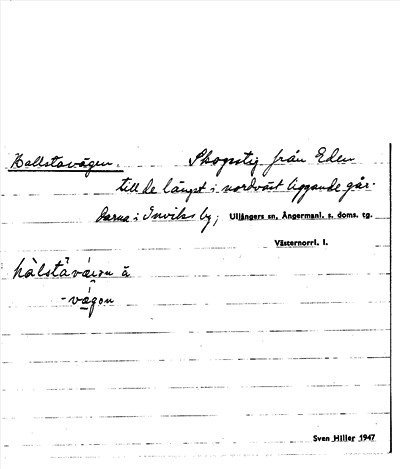 Hallstavägen. Skogstig från Eden
till de längst i nordväst liggande går-
darna i Inviks by; Ullångers sn, Ångermanl. s. doms. tg.
Västernorrl. l.
hàlstà
-vägon
Sven Hiller 1947